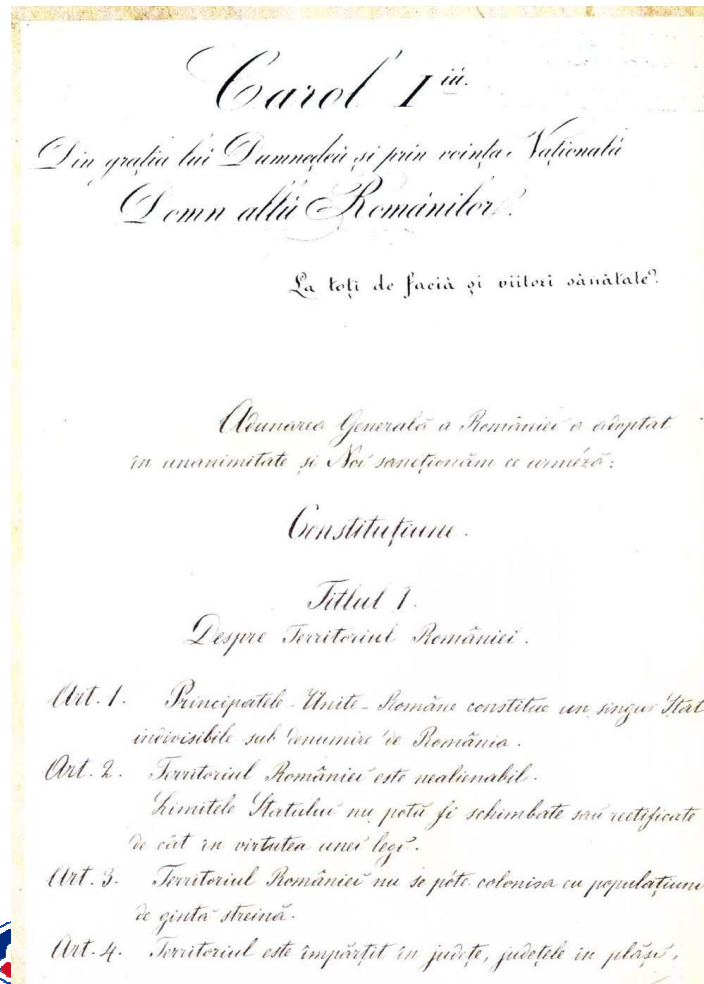 Carol I iŭ.
Din grația lui Dumnedeŭ și prin voința Națională
Domn allŭ Românilor.
La toți de facià și viitori sànàtate.
Adunarea Generală a României a adoptat
în unanimitate și Noi sancționăm ce urméză:
Constituțiune.
Titlul I.
Despre Territoriul României.
Art. 1. Principatele-Unite-Române constitue un singur Stat
indivisibile sub denumire de România.
Art. 2. Territoriul României este nealienabil.
Limitele Statului nu potŭ fi schimbate saŭ rectificate
de cât în virtutea unei legi.
Art. 3. Territoriul României nu se póte colonisa cu populațiuni
de gintă streină.
Art. 4. Territoriul este împărțit în județe, județele în plăși,